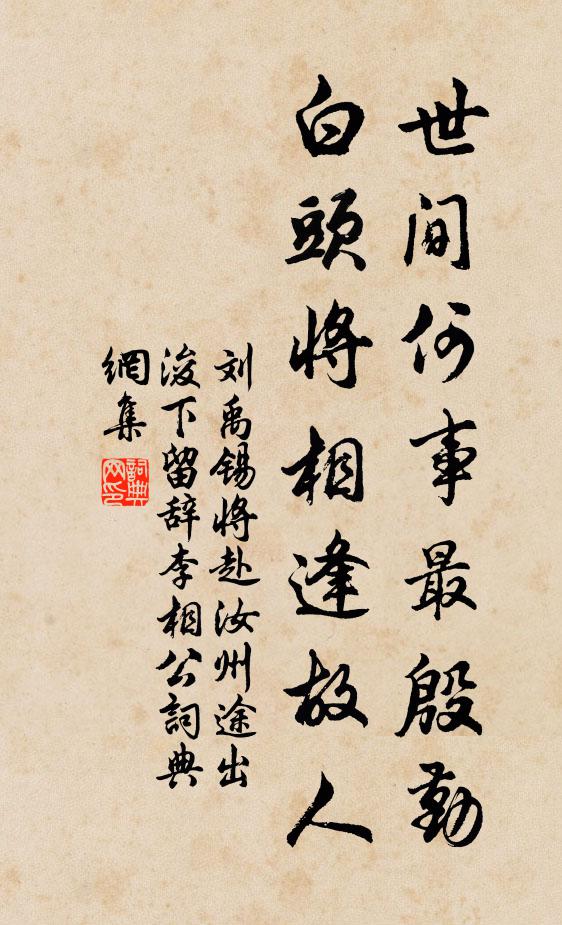 世間何事最殷勤
白頭將相逢故人
刘禹锡将赴汝州途出
浚下留辞李相公詞典
網集
詞典网印